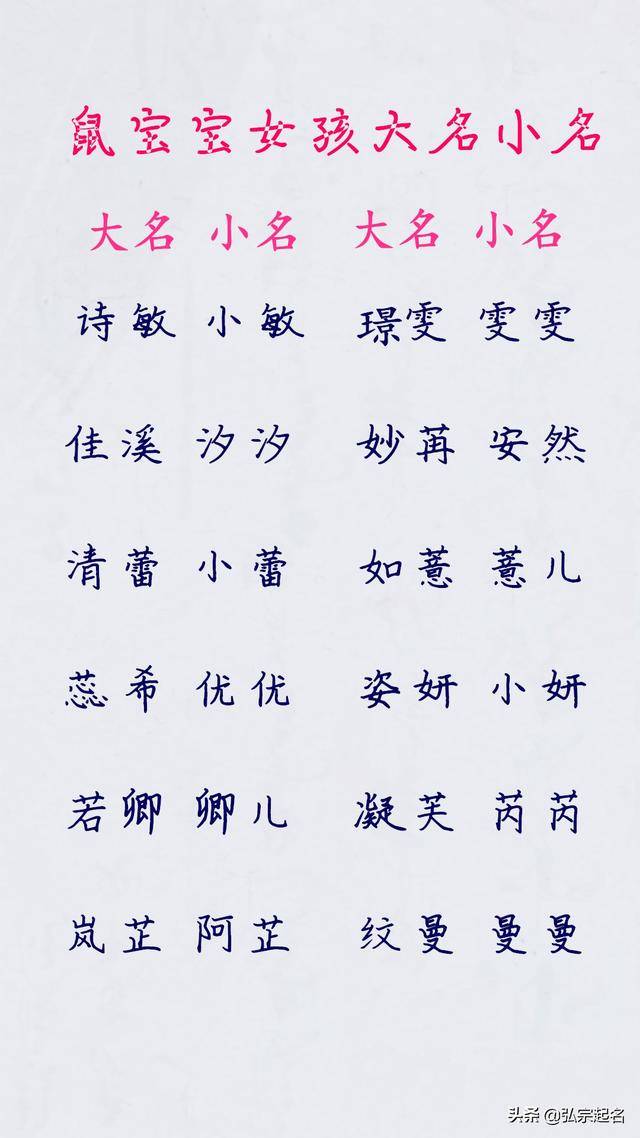 鼠宝宝女孩大名小名
大名 小名 大名 小名
诗敏 小敏 璟雯 雯雯
佳溪 汐汐 妙苒 安然
清蕾 小蕾 如薏 薏儿
蕊希 优优 姿妍 小妍
若卿 卿儿 凝芙 芮芮
岚芷 阿芷 纹曼 曼曼
头条 @弘宗起名